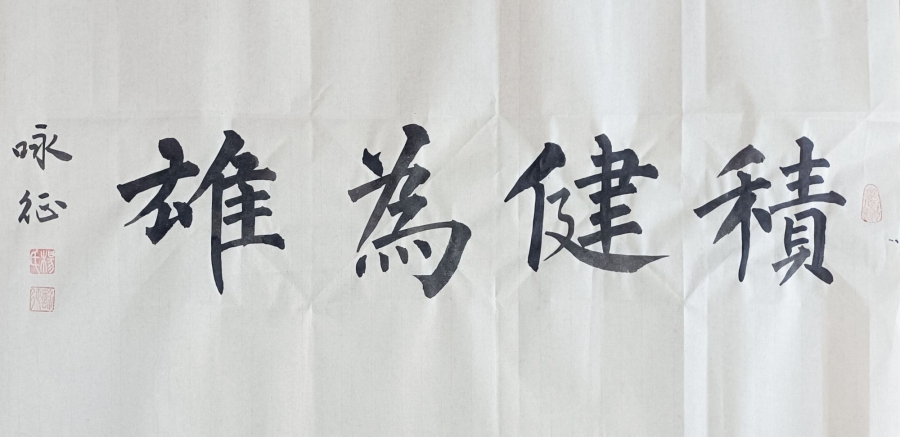 積健為雄
咏征